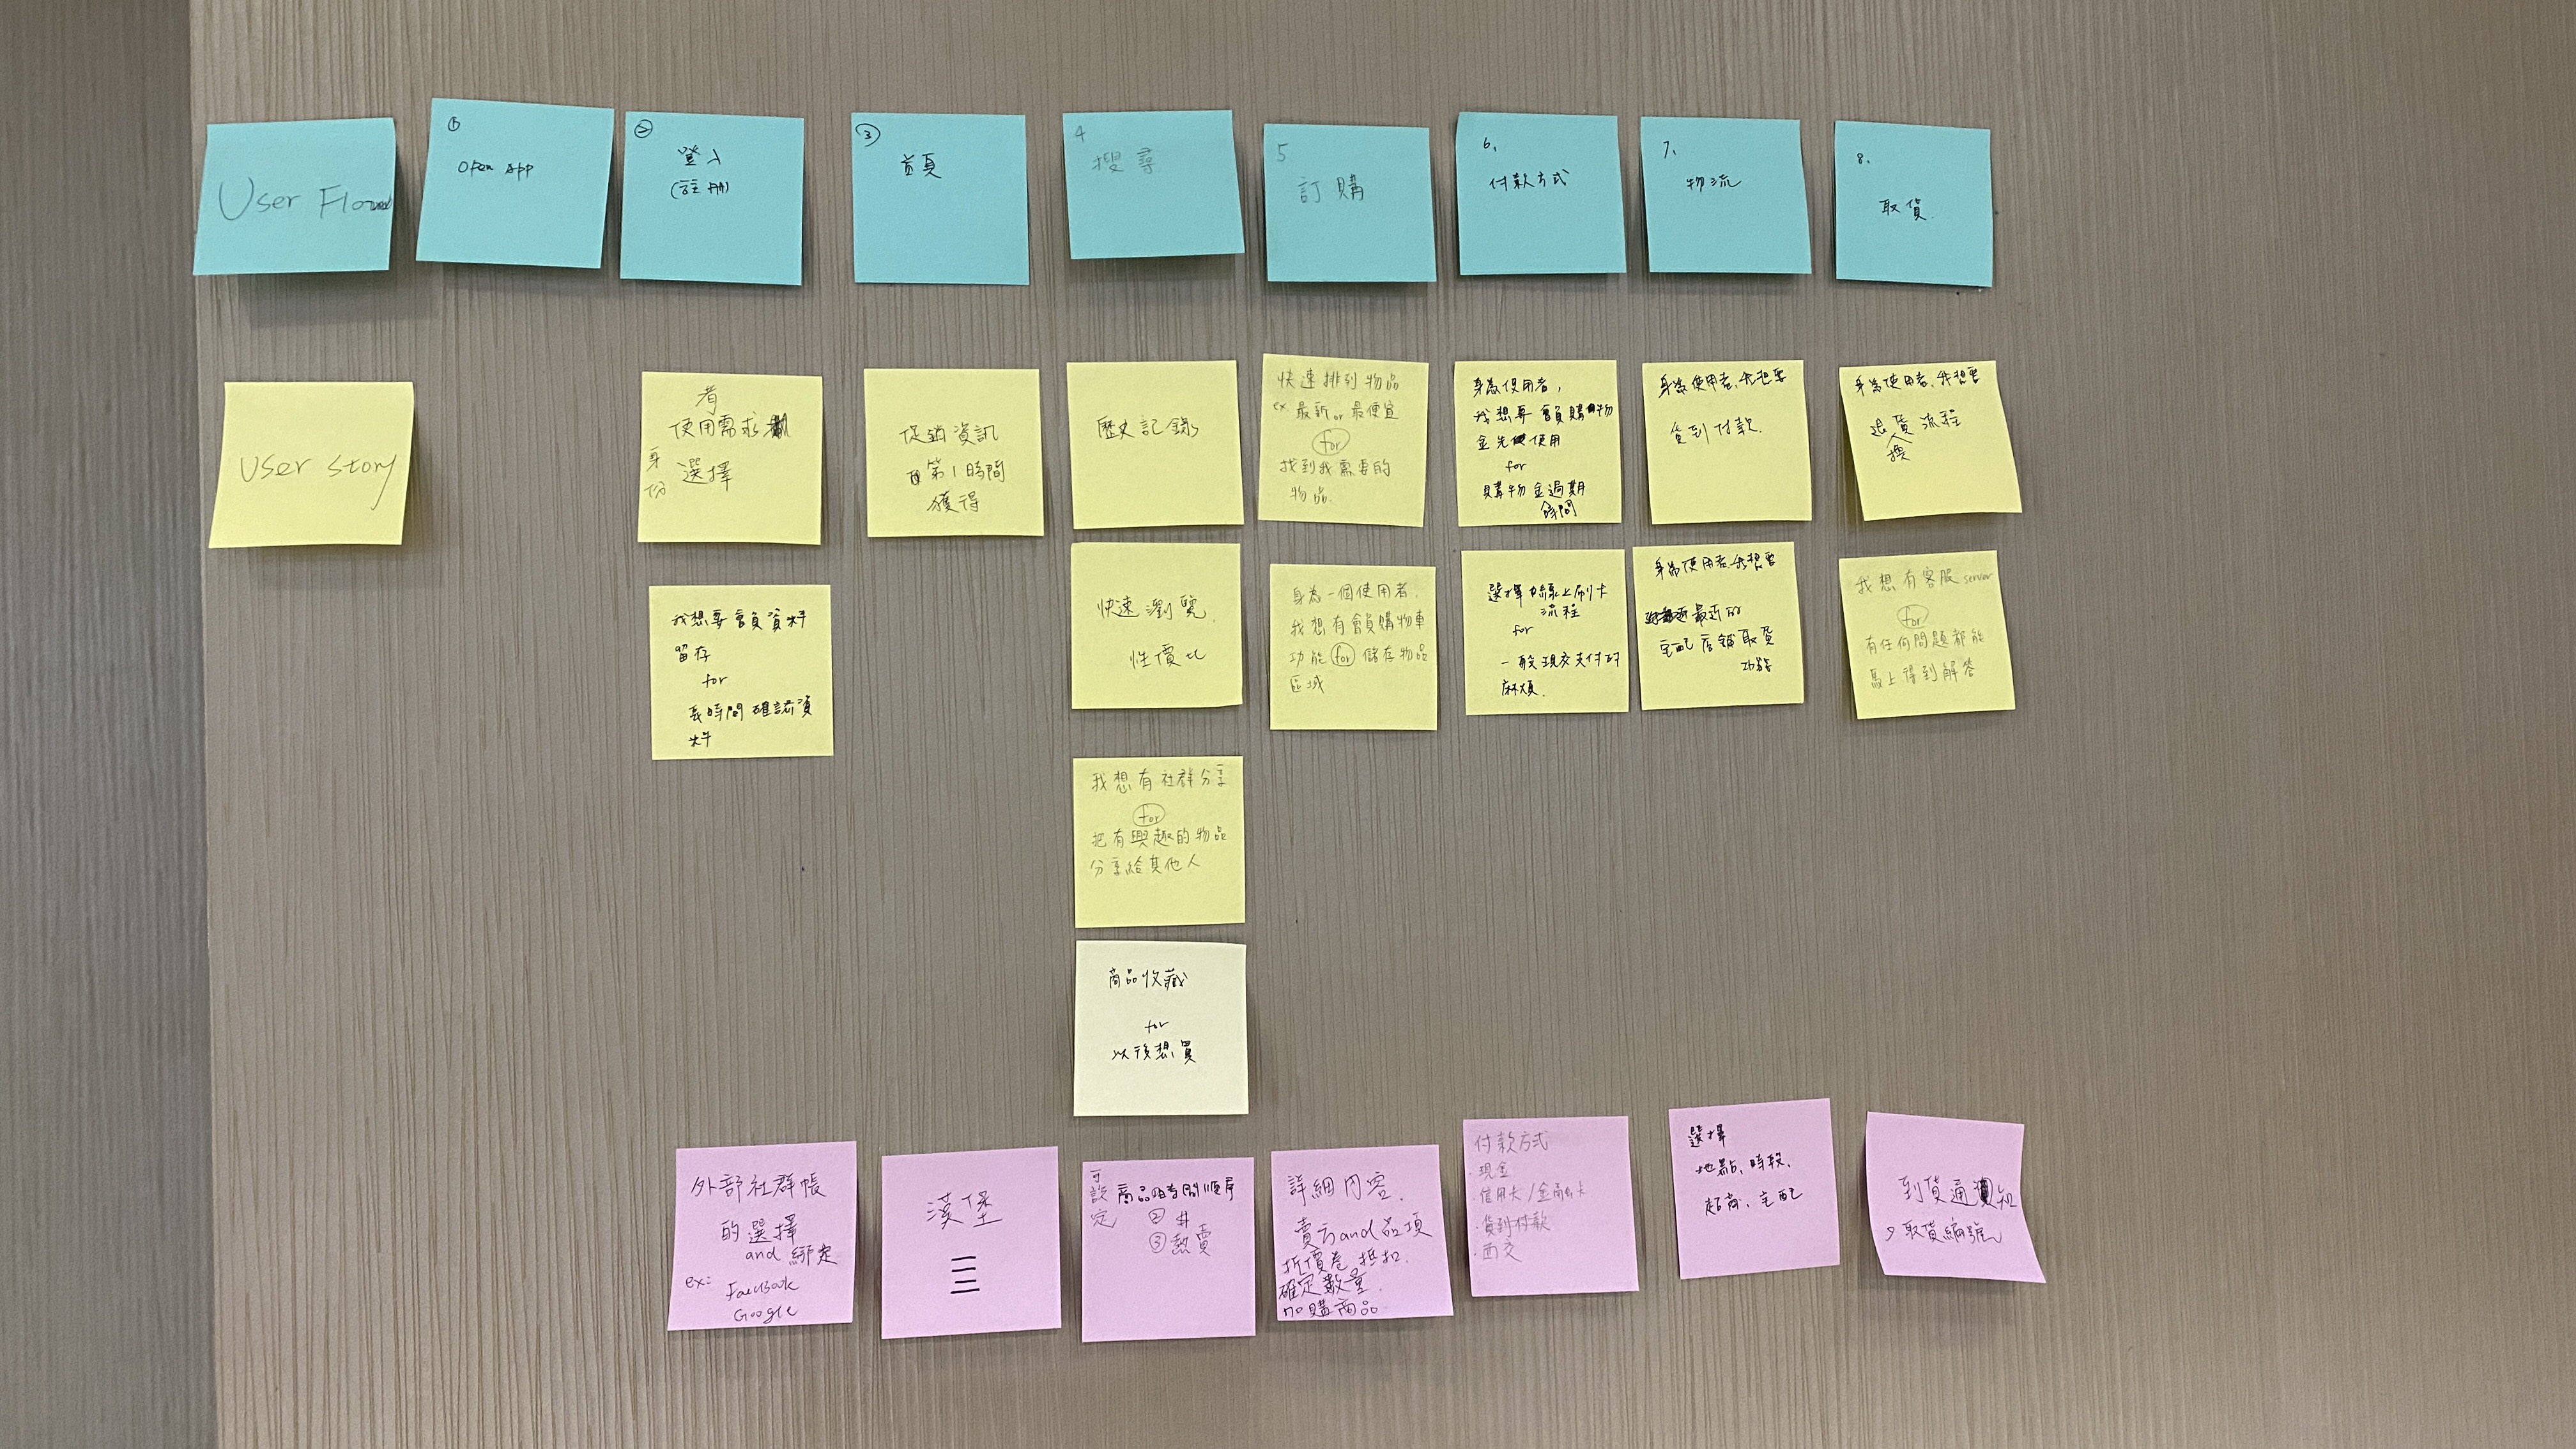 User Flow
①
Open App
②
登入
(註冊)
③
首頁
4
搜尋
5
訂購
6.
付款方式
7.
物流
8.
取貨
User story
者
使用需求
身份
選擇
促銷資訊
第1時間
獲得
歷史記錄
快速排列物品
ex 最新or最便宜
for
找到我需要的
物品.
身為使用者,
我想要會員購物
金先使用
for
購物金過期
時間
身為使用者,我想要
貨到付款.
身為使用者,我想要
退貨流程
換
我想要會員資料
留存
for
長時間確認資
料
快速瀏覽
性價比
身為一個使用者,
我想有會員購物車
功能for儲存物品
區域
選擇線上刷卡
流程
for
一般現交支付
麻煩.
身為使用者,我想要
最近的
宅配店鋪取貨
功能
我想有客服server
for
有任何問題都能
馬上得到解答
我想有社群分享
for
把有興趣的物品
分享給其他人
商品收藏
for
以後想買
外部社群帳
的選擇
and 綁定
ex: Facebook
Google
漢堡
可設定
商品順序
② $
③ 熱賣
詳細內容.
賣方and品項
折價卷抵扣.
確定數量.
加購商品
付款方式
·現金
·信用卡/金融卡
·貨到付款
·面交
選擇
地點、時段、
超商、宅配
到貨通知
取貨編號